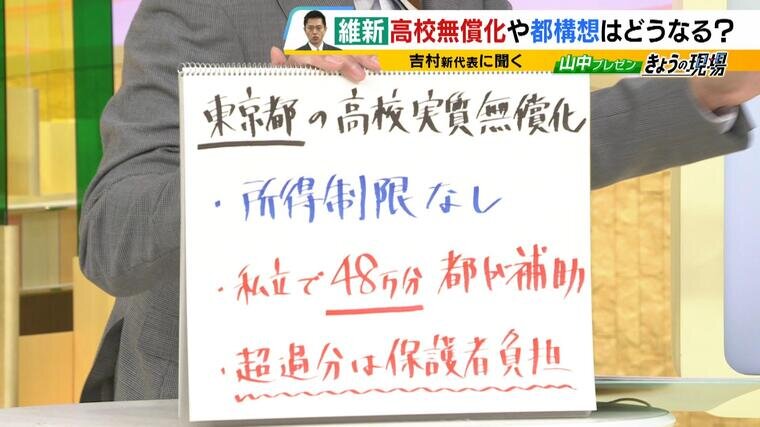 維新 高校無償化や都構想はどうなる?
吉村新代表に聞く
山中プレゼン きょうの現場
東京都の高校実質無償化
・所得制限なし
・私立で48万分 都が補助
・超過分は保護者負担